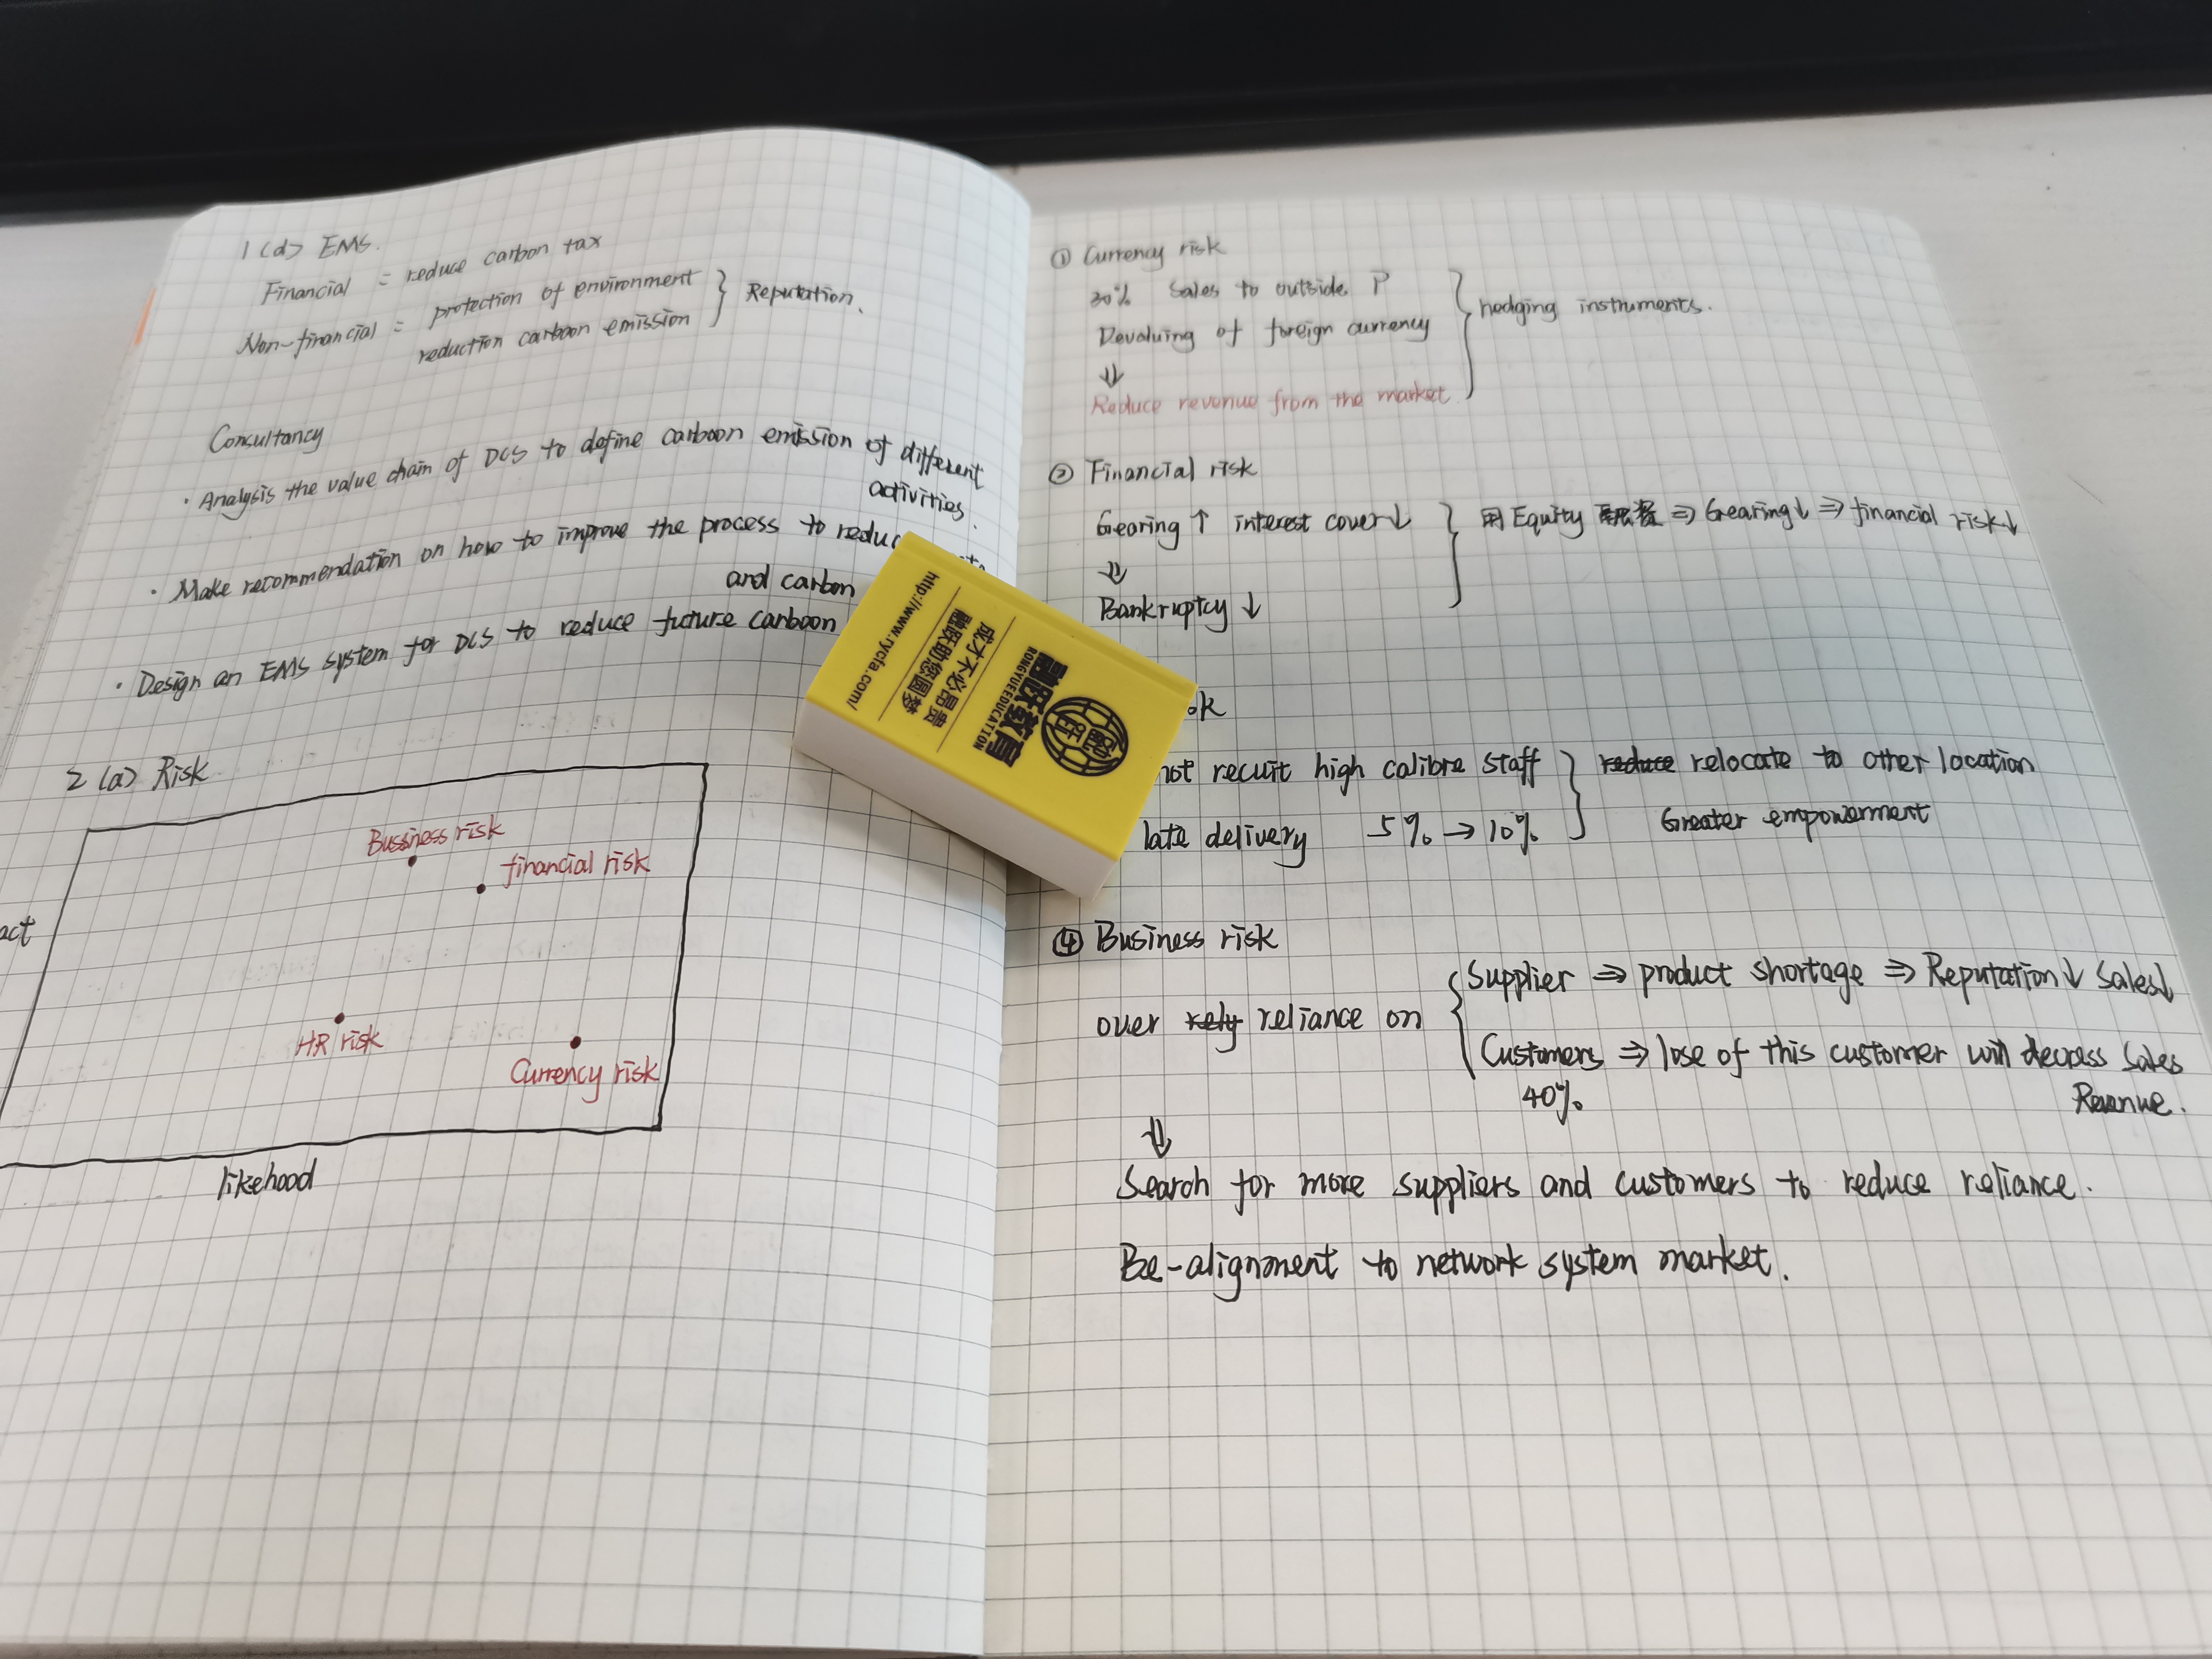 1 (d) EMS.
Financial = reduce carbon tax
Non-financial = protection of environment
reduction carboon emission
Reputation.
Consultancy
· Analysis the value chain of DCS to define carboon emission of different
activities.
· Make recommendation on how to improve the process to reduc
and carbon
· Design an EMS system for DCS to reduce future carboon
2 (a) Risk
Bussiness risk
financial risk
act
HR risk
Currency risk
likehood
http://www.rycfa.com/
融跃助您圆梦
成才不必昂贵
RONGYUEEDUCATION
融跃教育
① Currency risk
20% Sales to outside P
Devaluing of foreign currency
⇓
Reduce revenue from the market.
hedging instruments.
② Financial risk
Gearing ↑ interest cover ↓
⇓
Bankruptcy ↓
用 Equity 融资 ⇒ Gearing↓ ⇒ financial risk↓
sk
not recuit high calibre staff
late delivery 5% → 10%
reduce relocate to other location
Greater empowerment
④ Business risk
over rely reliance on
Supplier ⇒ product shortage ⇒ Reputation↓ Sales↓
Customers ⇒ lose of this customer will decress Sales
40%
Revenue.
⇓
Search for more suppliers and customers to reduce reliance.
Be-alignment to network system market.